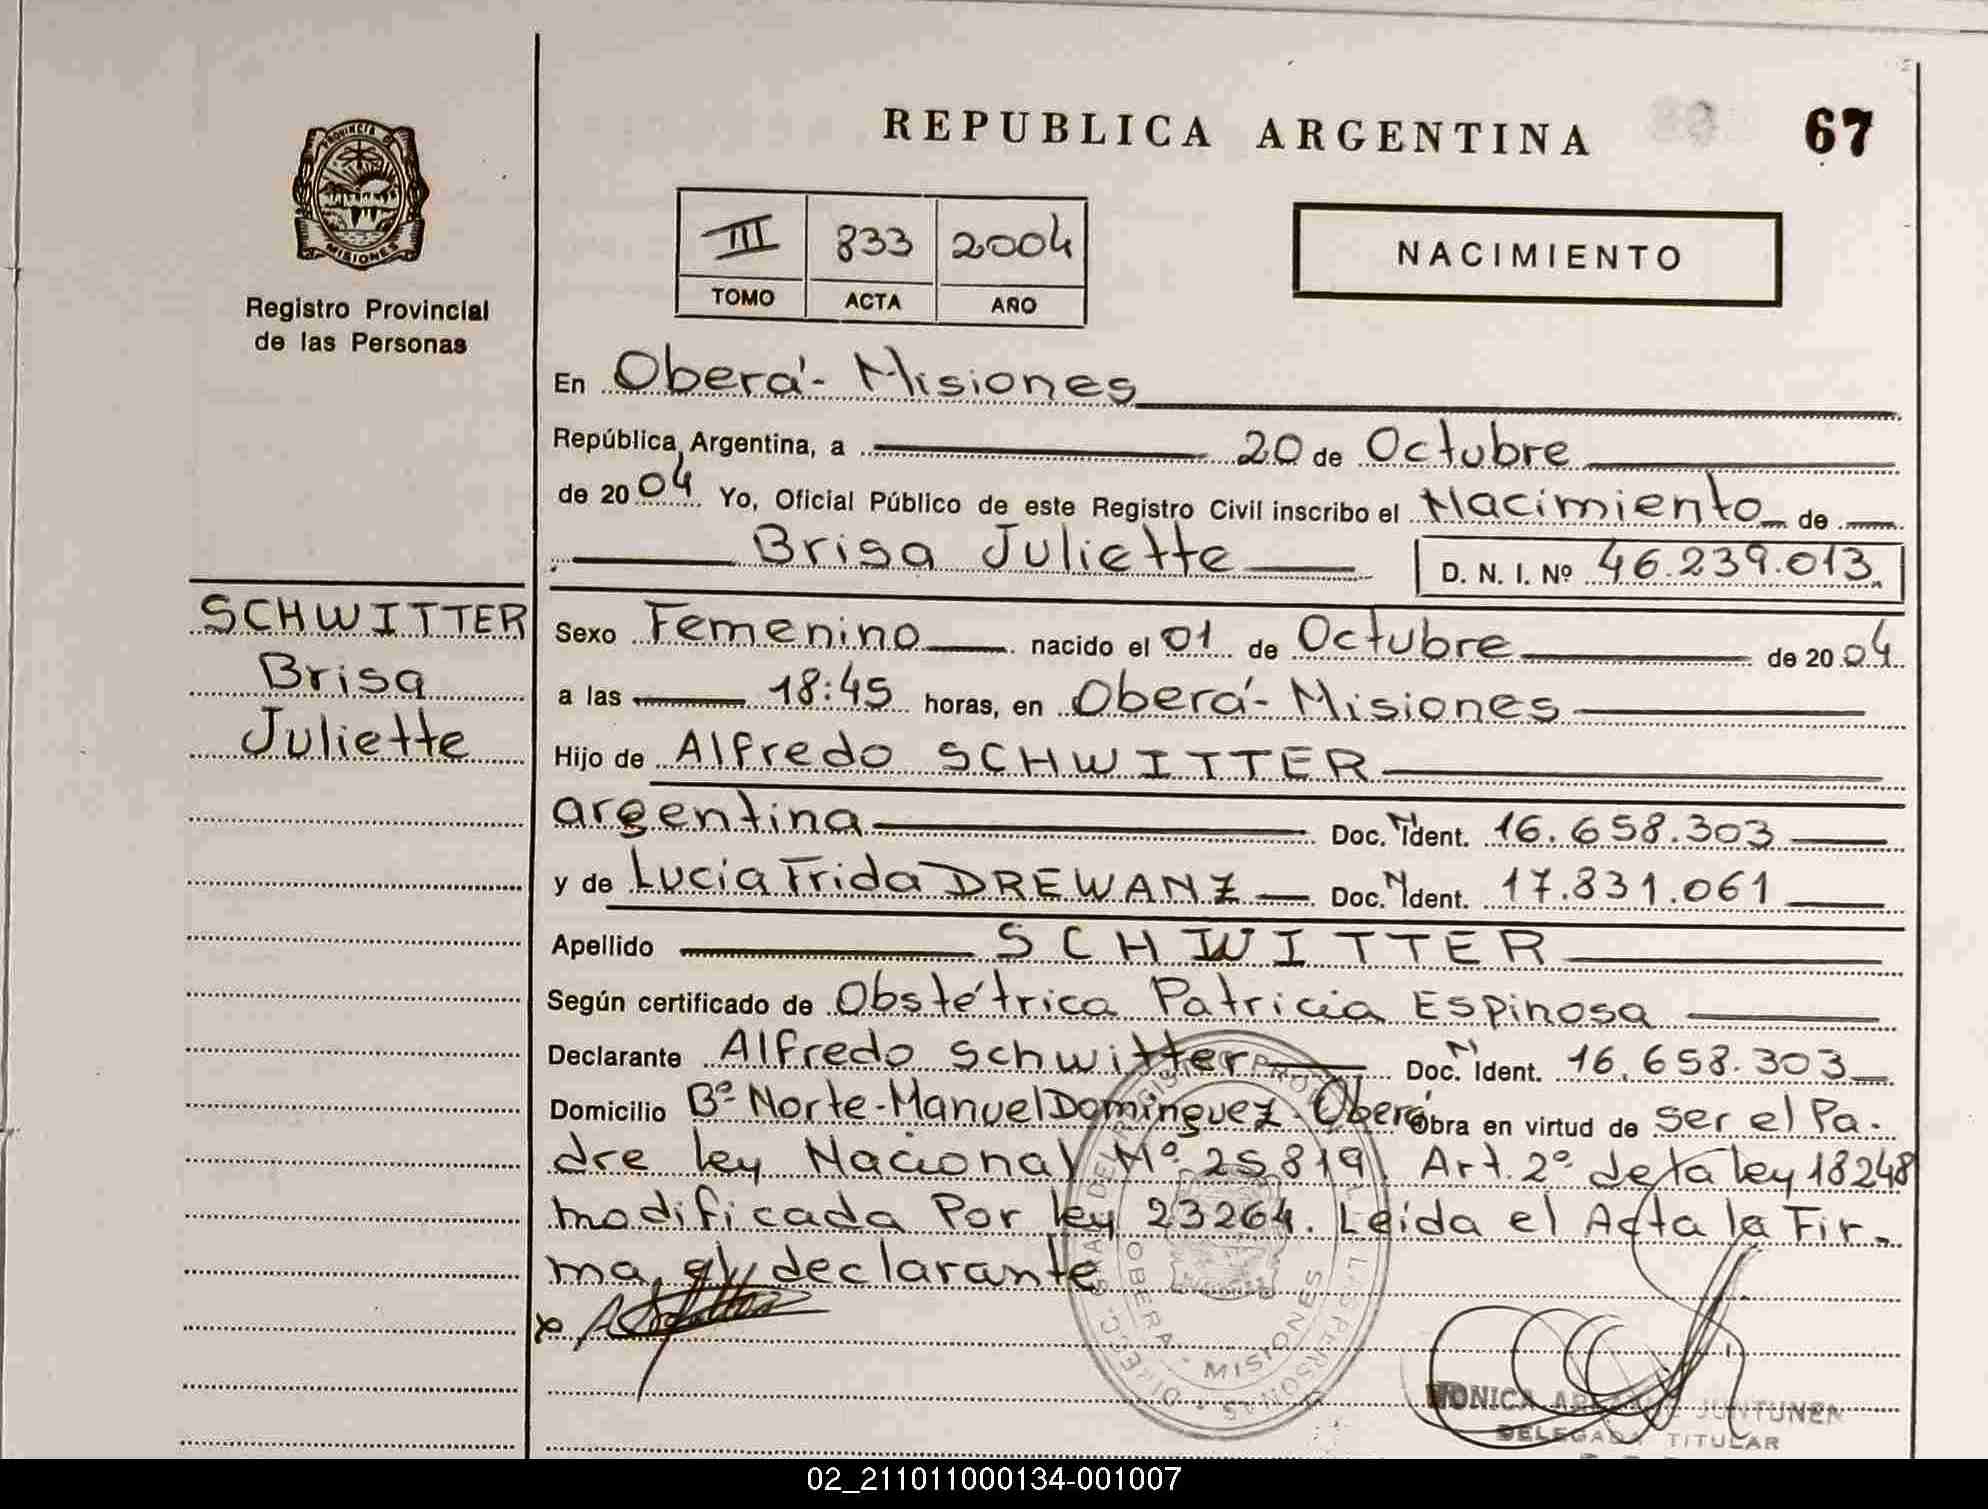 REPUBLICA ARGENTINA
67
PROVINCIA DE MISIONES
Registro Provincial
de las Personas
III 833 2004
TOMO ACTA AÑO
NACIMIENTO
En Oberá - Misiones
República Argentina, a 20 de Octubre
de 2004 Yo, Oficial Público de este Registro Civil inscribo el Nacimiento de
Brisa Juliette D. N. I. Nº 46.239.013
SCHWITTER
Brisa
Juliette
Sexo Femenino nacido el 01 de Octubre de 2004
a las 18:45 horas, en Oberá - Misiones
Hijo de Alfredo SCHWITTER
argentina Doc. N Ident. 16.658.303
y de Lucia Frida DREWANZ Doc. N Ident. 17.831.061
Apellido SCHWITTER
Según certificado de Obstétrica Patricia Espinosa
Declarante Alfredo Schwitter Doc. N Ident. 16.658.303
Domicilio Bº Norte - Manuel Dominguez - Oberá Obra en virtud de ser el Pa-
dre ley Nacional Nº 25819. Art. 2º de la ley 18248
modificada Por ley 23264. Leida el Acta la Fir-
ma, el declarante
OBERA - MISIONES
MONICA JUNTUNEN
DELEGADA TITULAR
02_211011000134-001007